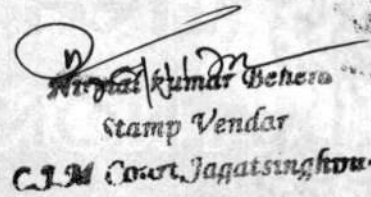 Nirmal Kumar Behera
Stamp Vendor
C.J.M Court, Jagatsinghpur